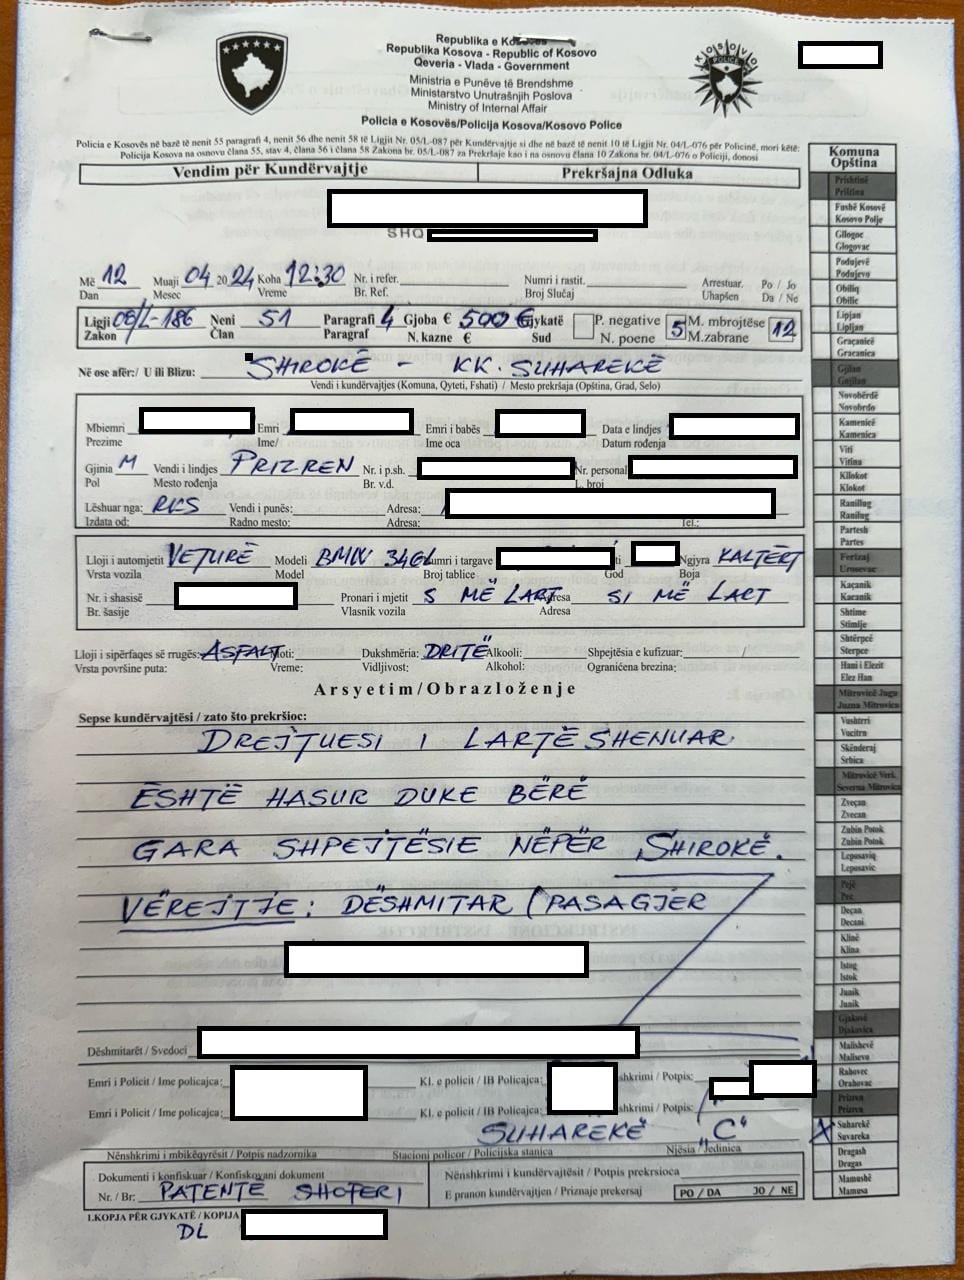 Republika e Kosovës
Republika Kosova - Republic of Kosovo
Qeveria - Vlada - Government
Ministria e Punëve të Brendshme
Ministarstvo Unutrašnjih Poslova
Ministry of Internal Affair
Policia e Kosovës/Policija Kosova/Kosovo Police
KOSOVO
POLICE
Policia e Kosovës në bazë të nenit 55 paragrafi 4, nenit 56 dhe nenit 58 të Ligjit Nr. 05/L-087 për Kundërvajtje si dhe në bazë të nenit 10 të Ligjit Nr. 04/L-076 për Policinë, mori këtë:
Policija Kosova na osnovu člana 55, stav 4, člana 56 i člana 58 Zakona br. 05/L-087 za Prekršaje kao i na osnovu člana 10 Zakona br. 04/L-076 o Policiji, donosi
Vendim për Kundërvajtje Prekršajna Odluka
SHQ
Më 12 Muaji 04 2024 Koha 12:30 Nr. i refer. Numri i rastit. Arrestuar. Po / Jo
Dan Mesec Vreme Br. Ref. Broj Slučaj Uhapšen Da / Ne
Ligji 08/L-186 Neni 51 Paragrafi 4 Gjoba € 500 € Gjykatë P. negative 5 M. mbrojtëse 12
Zakon Član Paragraf N. kazne € Sud N. poene M.zabrane
Në ose afër:/ U ili Blizu: SHIROKË - KK. SUHAREKË
Vendi i kundërvajtjes (Komuna, Qyteti, Fshati) / Mesto prekršaja (Opština, Grad, Selo)
Mbiemri Emri Emri i babës Data e lindjes
Prezime Ime/ Ime oca Datum rođenja
Gjinia M Vendi i lindjes PRIZREN Nr. i p.sh. Nr. personal
Pol Mesto rođenja Br. v.d. L. broj
Lëshuar nga: RKS Vendi i punës: Adresa:
Izdata od: Radno mesto: Adresa: Tel.:
Lloji i automjetit VETURË Modeli BMW 346L Numri i targave Ngjyra KALTËRT
Vrsta vozila Model Broj tablice God Boja
Nr. i shasisë Pronari i mjetit S MË LART Adresa SI MË LART
Br. šasije Vlasnik vozila Adresa
Lloji i sipërfaqes së rrugës: ASFALT Moti: Dukshmëria: DRITË Alkooli: Shpejtësia e kufizuar: /
Vrsta površine puta: Vreme: Vidljivost: Alkohol: Ograničena brezina:
Arsyetim/Obrazloženje
Sepse kundërvajtësi / zato što prekršioc:
DREJTUESI I LARTË SHENUAR
ËSHTË HASUR DUKE BËRË
GARA SHPEJTËSIE NËPËR SHIROKË.
VËREJTJE: DËSHMITAR (PASAGJER
Dëshmitarët / Svedoci
Emri i Policit / Ime policajca: Kl. e policit / IB Policajca: shkrimi / Potpis:
Emri i Policit / Ime policajca: Kl. e policit / IB Policajca: shkrimi / Potpis:
SUHAREKË "C"
Nënshkrimi i mbikëqyrësit / Potpis nadzornika Stacioni policor / Policijska stanica Njësia / Jedinica
Dokumenti i konfiskuar / Konfiskovani dokument
Nr. / Br: PATENTË SHOFERI
Nënshkrimi i kundërvajtësit / Potpis prekrsioca
E pranon kundërvajtjen / Priznaje prekersaj PO / DA JO / NE
1.KOPJA PËR GJYKATË / KOPIJA
DL
Komuna
Opština
Prishtinë
Priština
Fushë Kosovë
Kosovo Polje
Gllogoc
Glogovac
Podujevë
Podujevo
Obiliq
Obilic
Lipjan
Lipljan
Graçanicë
Gracanica
Gjilan
Gnjilan
Novobërdë
Novobrdo
Kamenicë
Kamenica
Viti
Vitina
Kllokot
Klokot
Ranillug
Ranilug
Partesh
Partes
Ferizaj
Urosevac
Kaçanik
Kacanik
Shtime
Stimlje
Shtërpcë
Sterpce
Hani i Elezit
Elez Han
Mitrovicë Jugu
Juzna Mitrovica
Vushtrri
Vucitrn
Skënderaj
Srbica
Mitrovicë Veri.
Severna Mitrovica
Zveçan
Zvecan
Zubin Potok
Zubin Potok
Leposaviq
Leposavic
Pejë
Pec
Deçan
Decani
Klinë
Klina
Istog
Istok
Junik
Junik
Gjakovë
Djakovica
Malishevë
Malisevo
Rahovec
Orahovac
Prizren
Prizren
X Suharekë
Suvareka
Dragash
Dragas
Mamushë
Mamusa